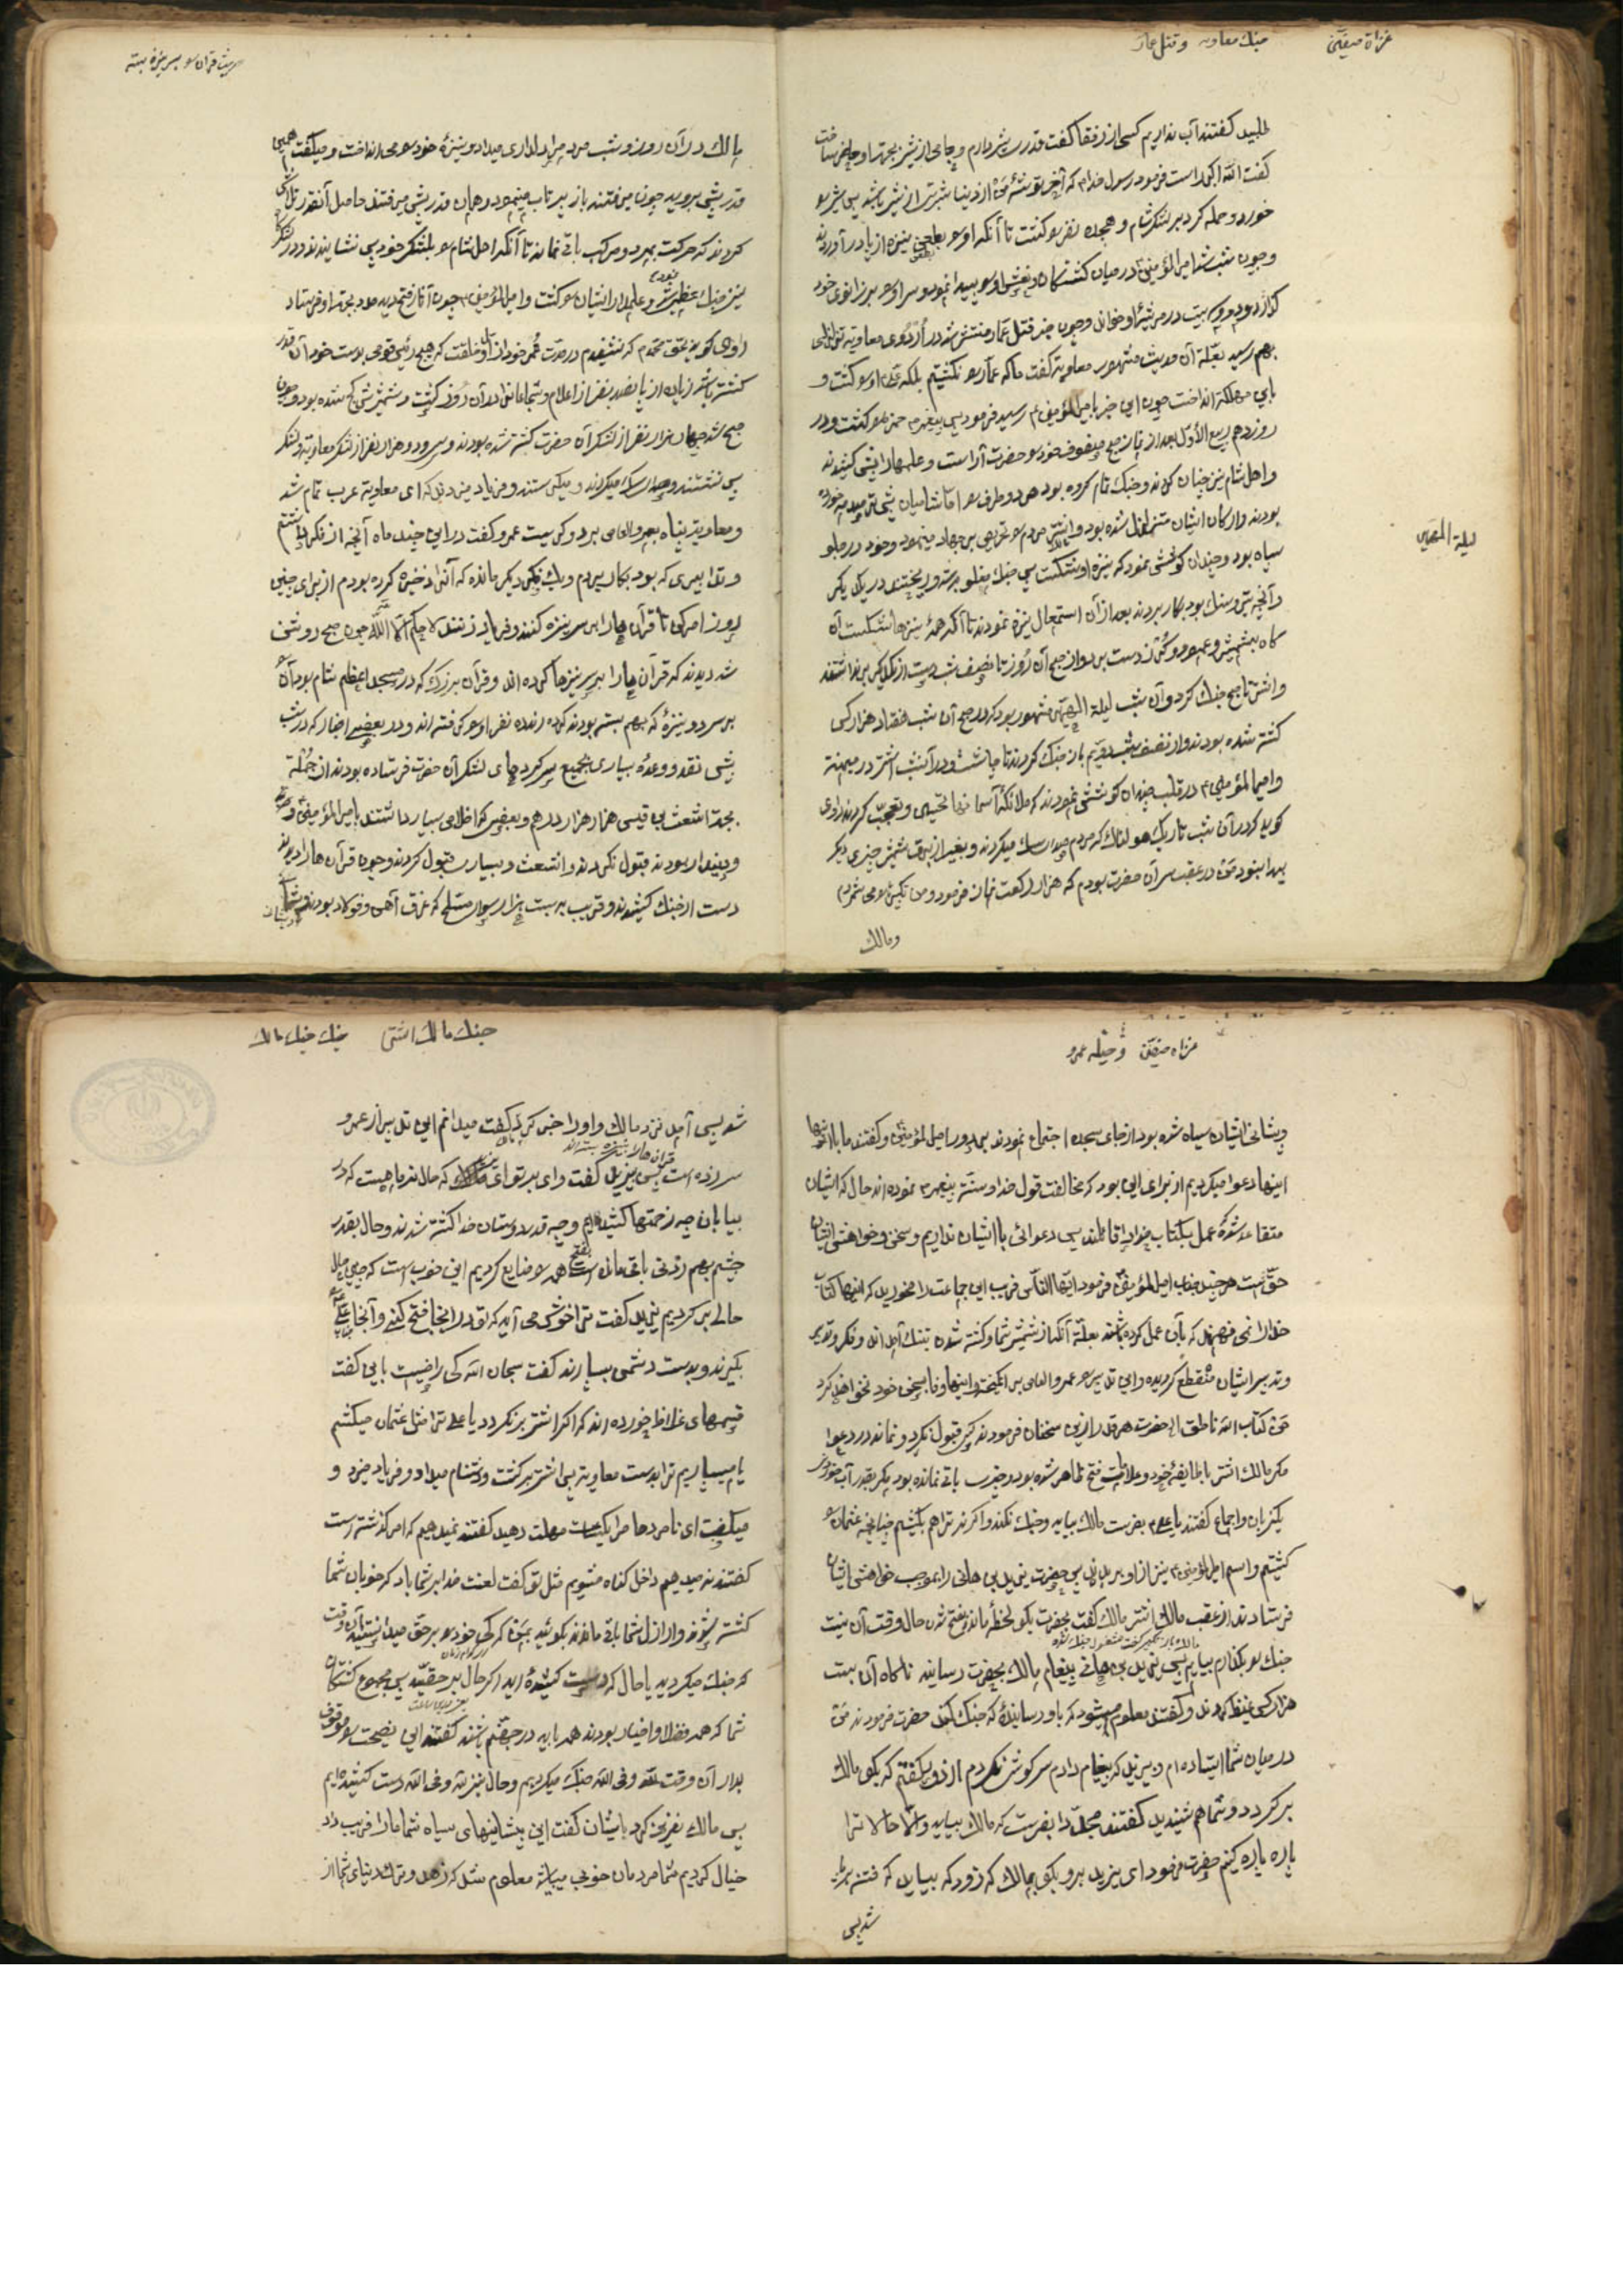 غزاة صفین
جنك معاویه و قتل عمار
طلبید کفتند آب نداریم کسی از رفقا کفت قدری شیر دارم و جامی از شیر بجهة او حاضر ساخت
کفت الله اکبر راست فرمود رسول خدا م که آخر توشهٔ من از دنیا شربتی از شیر باشد پس شیر و
خورد و حمله کرد بر لشکر شام و هجده نفر را کشت تا آنکه او را بطعن نیزه از پا در آوردند
و چون شب شد امیر المؤمنین در میان کشتکان نعش او را پیدا نمود و سر او را بر زانوی خود
کذارد و دو بیت در مرثیهٔ او خواند و چون خبر قتل عمار منتشر شد در اردوی معاویه تزلزلی
بهم رسید بعلّة آن حدیث مشهور معاویه کفت ما که عمار را نکشتیم بلکه علی او را کشت و
باین مهلکه انداخت چون این خبر بامیر المؤمنین رسید فرمود پس پیغمبر حمزه را کشت و در
روز دهم ربیع الأوّل بعد از نماز صبح صفوف خود را حضرت آراست و علمها را پیش کشیدند
و اهل شام نیز چنان کردند و جنك تمام کرده بود هر دو طرف را اما شامیان بیشتر صدمه خورده
بودند و ارکان ایشان متزلزل شده بود و اشتر مردم را تحریص بر جهاد مینمود و خود در جلو
سپاه بود و چندان کوشش نمود که نیزه او شکست پس جنك مغلوبه شد و ریختند در یکدیکر
و آنچه تیر و سنك بود بکار بردند بعد از آن استعمال نیزه نمودند تا آنکه همهٔ نیزها شکست آن
کاه بشمشیر و عمود و کرز دست بردند و از صبح آن روز تا نصف شب دست از یکدیکر بر نداشتند
و اشتر تا صبح جنك کرد و آن شب لیلة الهریر مشهور بود که در صبح آن شب هفتاد هزار کس
کشته شده بودند و از نصف شب دویّم باز جنك کردند تا چاشت و در آنشب اشتر در میمنه
و امیر المؤمنین در قلب چندان کوشش نمودند که ملائکهٔ آسمانها تحسین و تعجّب کردند راوی
کوید که در آن شب تاریك هولناك که مردم صدای سك میکردند و بغیر از برق شمشیر چیزی دیکر
پیدا نبود من در عقب سر آن حضرت بودم که هزار رکعت نماز فرمود و من تکبیر او را می شمردم
و مالك
لیلة الهریر
حیلت قرآن را بر سر نیزه بسته
مالك در آن روز و شب مردم را دلداری میداد و نیزهٔ خود را می انداخت و میکفت همین
قدر پیش بروید چون میرفتند باز پرتاب مینمود و همان قدر پیش میرفتند حاصل آنقدر تلاش
کردند که حرکت بمرد و مرکب باقی نماند تا آنکه اهل شام را بلشکر خود پس نشانیدند و در لشکر
نیز جنك عظیمی نمود و علمدار ایشان را کشت و امیر المؤمنین چون آثار فتح دید مدد بجهة او فرستاد
راوی کوید بحق محمّد م که نشنیدم در مدّت عُمر خود از اوّل خلقت که هیچ رئیس قومی بدست خود آن قدر
کشته باشد زیاده از پانصد نفر از اعلام و شجاعان در آن روز کشت و شمشیرش کج شده بود و چون
صبح شد چهار هزار نفر از لشکر آن حضرت کشته شده بودند و سی و دو هزار نفر از لشکر معاویه و لشکر
پس نشستند و صدای سك میکردند و میکریستند و فریاد میزدند که ای معاویة عرب تمام شد
و معاویه پناه بعمرو العاص برد و کریست عمرو کفت در این چند ماه آنچه از فکر داشتم
و تدابیری که بود بکار بردم و یك فکر دیکر مانده که آنرا ذخیره کرده بودم از برای چنین
روز امر کن تا قرآن ها را بر سر نیزه کنند و فریاد زنند لا حکم الا الله چون صبح روشن
شد دیدند که قرآن ها را بر سر نیزها کرده اند و قرآن بزرك که در مسجد اعظم شام بود آن
بر سر دو نیزهٔ که بهم بسته بودند کرده و ده نفر او را کرفته اند و در بعضی اخبار که در شب
پیش نقد و وعدهٔ بسیاری بجمیع سرکردهای لشکر آن حضرت فرستاده بودند از جملة
بجهة اشعث بن قیس هزار هزار درهم و بعضی که اخلاص بسیار داشتند بامیر المؤمنین
و دیندار بودند قبول نکردند و اشعث و بسیار قبول کردند و چون قرآن ها را دیدند
دست از جنك کشیدند و قریب به بیست هزار سوار مسلّح که غرق آهن و فولاد بودند
غزاه صفین و حیله عمرو
و پیشانی ایشان سیاه شده بود از جای سجده اجتماع نمودند بر دور امیر المؤمنین و کفتند ما با
اینها دعوا میکردیم از برای این بود که مخالفت قول خدا و سنّت پیغمبر نموده اند حال که ایشان
متقاعد شده عمل بکتاب خدا را قائلند پس دعوائی با ایشان نداریم و سخن و خواهش ایشان
حقّ است هر چند جناب امیر المؤمنین فرمود ایّها النّاس فریب این جماعت را مخورید که اینها کتاب
خدا را نمی فهمند که بآن عمل کرده باشند بعلّة آنکه از شمشیر شما و کشته شدن بتنك آمده اند و فکر و تدبیر
و تدبیر ایشان منقطع کردیده و این تدبیر را عمرو العاص بر انکیخته و اینها وفا بسخن خود نخواهند کرد
من کتاب الله ناطق ام حضرت هر قدر ازین سخنان فرمودند کس قبول نکرد و نماند در دعوا
مکر مالك اشتر با طایفهٔ خود و علامات فتح ظاهر شده بود و چیزی باقی نمانده بود مکر بقدر آب خوردن
یکزبان و اجماع کفتند یا علی م بفرست مالك بیاید و جنك نکند و اکر نه ترا هم بکشیم چنانچه عثمان را
کشتیم و اسم امیر المؤمنین نیز از او بر پس حضرت یزید بن هانی را بموجب خواهش ایشان
فرستادند از عقب مالك اشتر مالك کفت بحضرت بکو لحظهٔ مانده بفتح شدن حال وقت آن نیست
جنك را بکذارم بیایم پس یزید بن هانی پیغام مالك بحضرت رسانید ناکاه آن بیست
هزار کس غیظ کردند و کفتند معلوم میشود که باو رسانیدهٔ که جنك کند حضرت فرمودند من
در میان شما ایستاده ام و یزید که پیغام دادم سرکوش نکردم از دور بکفتم که بکو مالك
بر کردد و شما هم شنیدید کفتند مجدّدا بفرست که مالك بیاید و الّا حالا ترا
پاره پاره کنیم حضرت فرمود ای یزید برو بکو بمالك که زود که بیاید که فتنه برپا
شد پس
جنك مالك اشتر
جنك مالك
شد پس آمد نزد مالك و او را خبر کرد کفت میدانم این تدبیر از عمرو
سر زده است پس یزید کفت وای بر تو ای که حالا نزد ما چیست که در
بیابان چه زحمتها کشیده ایم و چه قدر دوستان خدا کشته شدند و حال بقدر
چشم بهم زدنی باقی مانده است بفتح همه را ضایع کردیم این خوب است که
حالی بر کردیم یزید کفت ترا خوش می آید که تو در اینجا فتح کنی و آنجا علی را
بکیرند و بدست دشمن بسپارند کفت سبحان الله کی راضیست باین کفت
قسمهای غلاظ خورده اند که اکر اشتر بر نکردد یا علی ترا مثل عثمان میکشیم
یا میسپاریم ترا بدست معاویه پس اشتر بر کشت و دشنام میداد و فریاد میزد و
میکفت ای نامردها مرا یکساعت مهلت دهید کفتند نمیدهیم که امر کذشته است
کفتند نه میدهیم داخل کناه میشویم مثل تو کفت لعنت خدا بر شما باد که خوبان شما
کشته شوند و اراذل شما باقی ماندند بکوئید بمن که کی خود را بر حق میدانستید آن وقت
که جنك میکردید یا حال که دست کشیده اید اکر حال بر حقّید پس مجموع کشتکان
شما که همه فضلا و اخیار بودند همه باید در جهنّم باشند کفتند این نصیحت را موقوف
بدار آن وقت للّه و فی اللّه جنك میکردیم و حال نیز للّه و فی اللّه دست کشیده ایم
پس مالك نفرین کرد بایشان کفت این پیشانیهای سیاه شما ما را فریب داد
خیال کردیم شما مردمان خوبی میباشید معلوم شد که زهد و ترك دنیای شما از